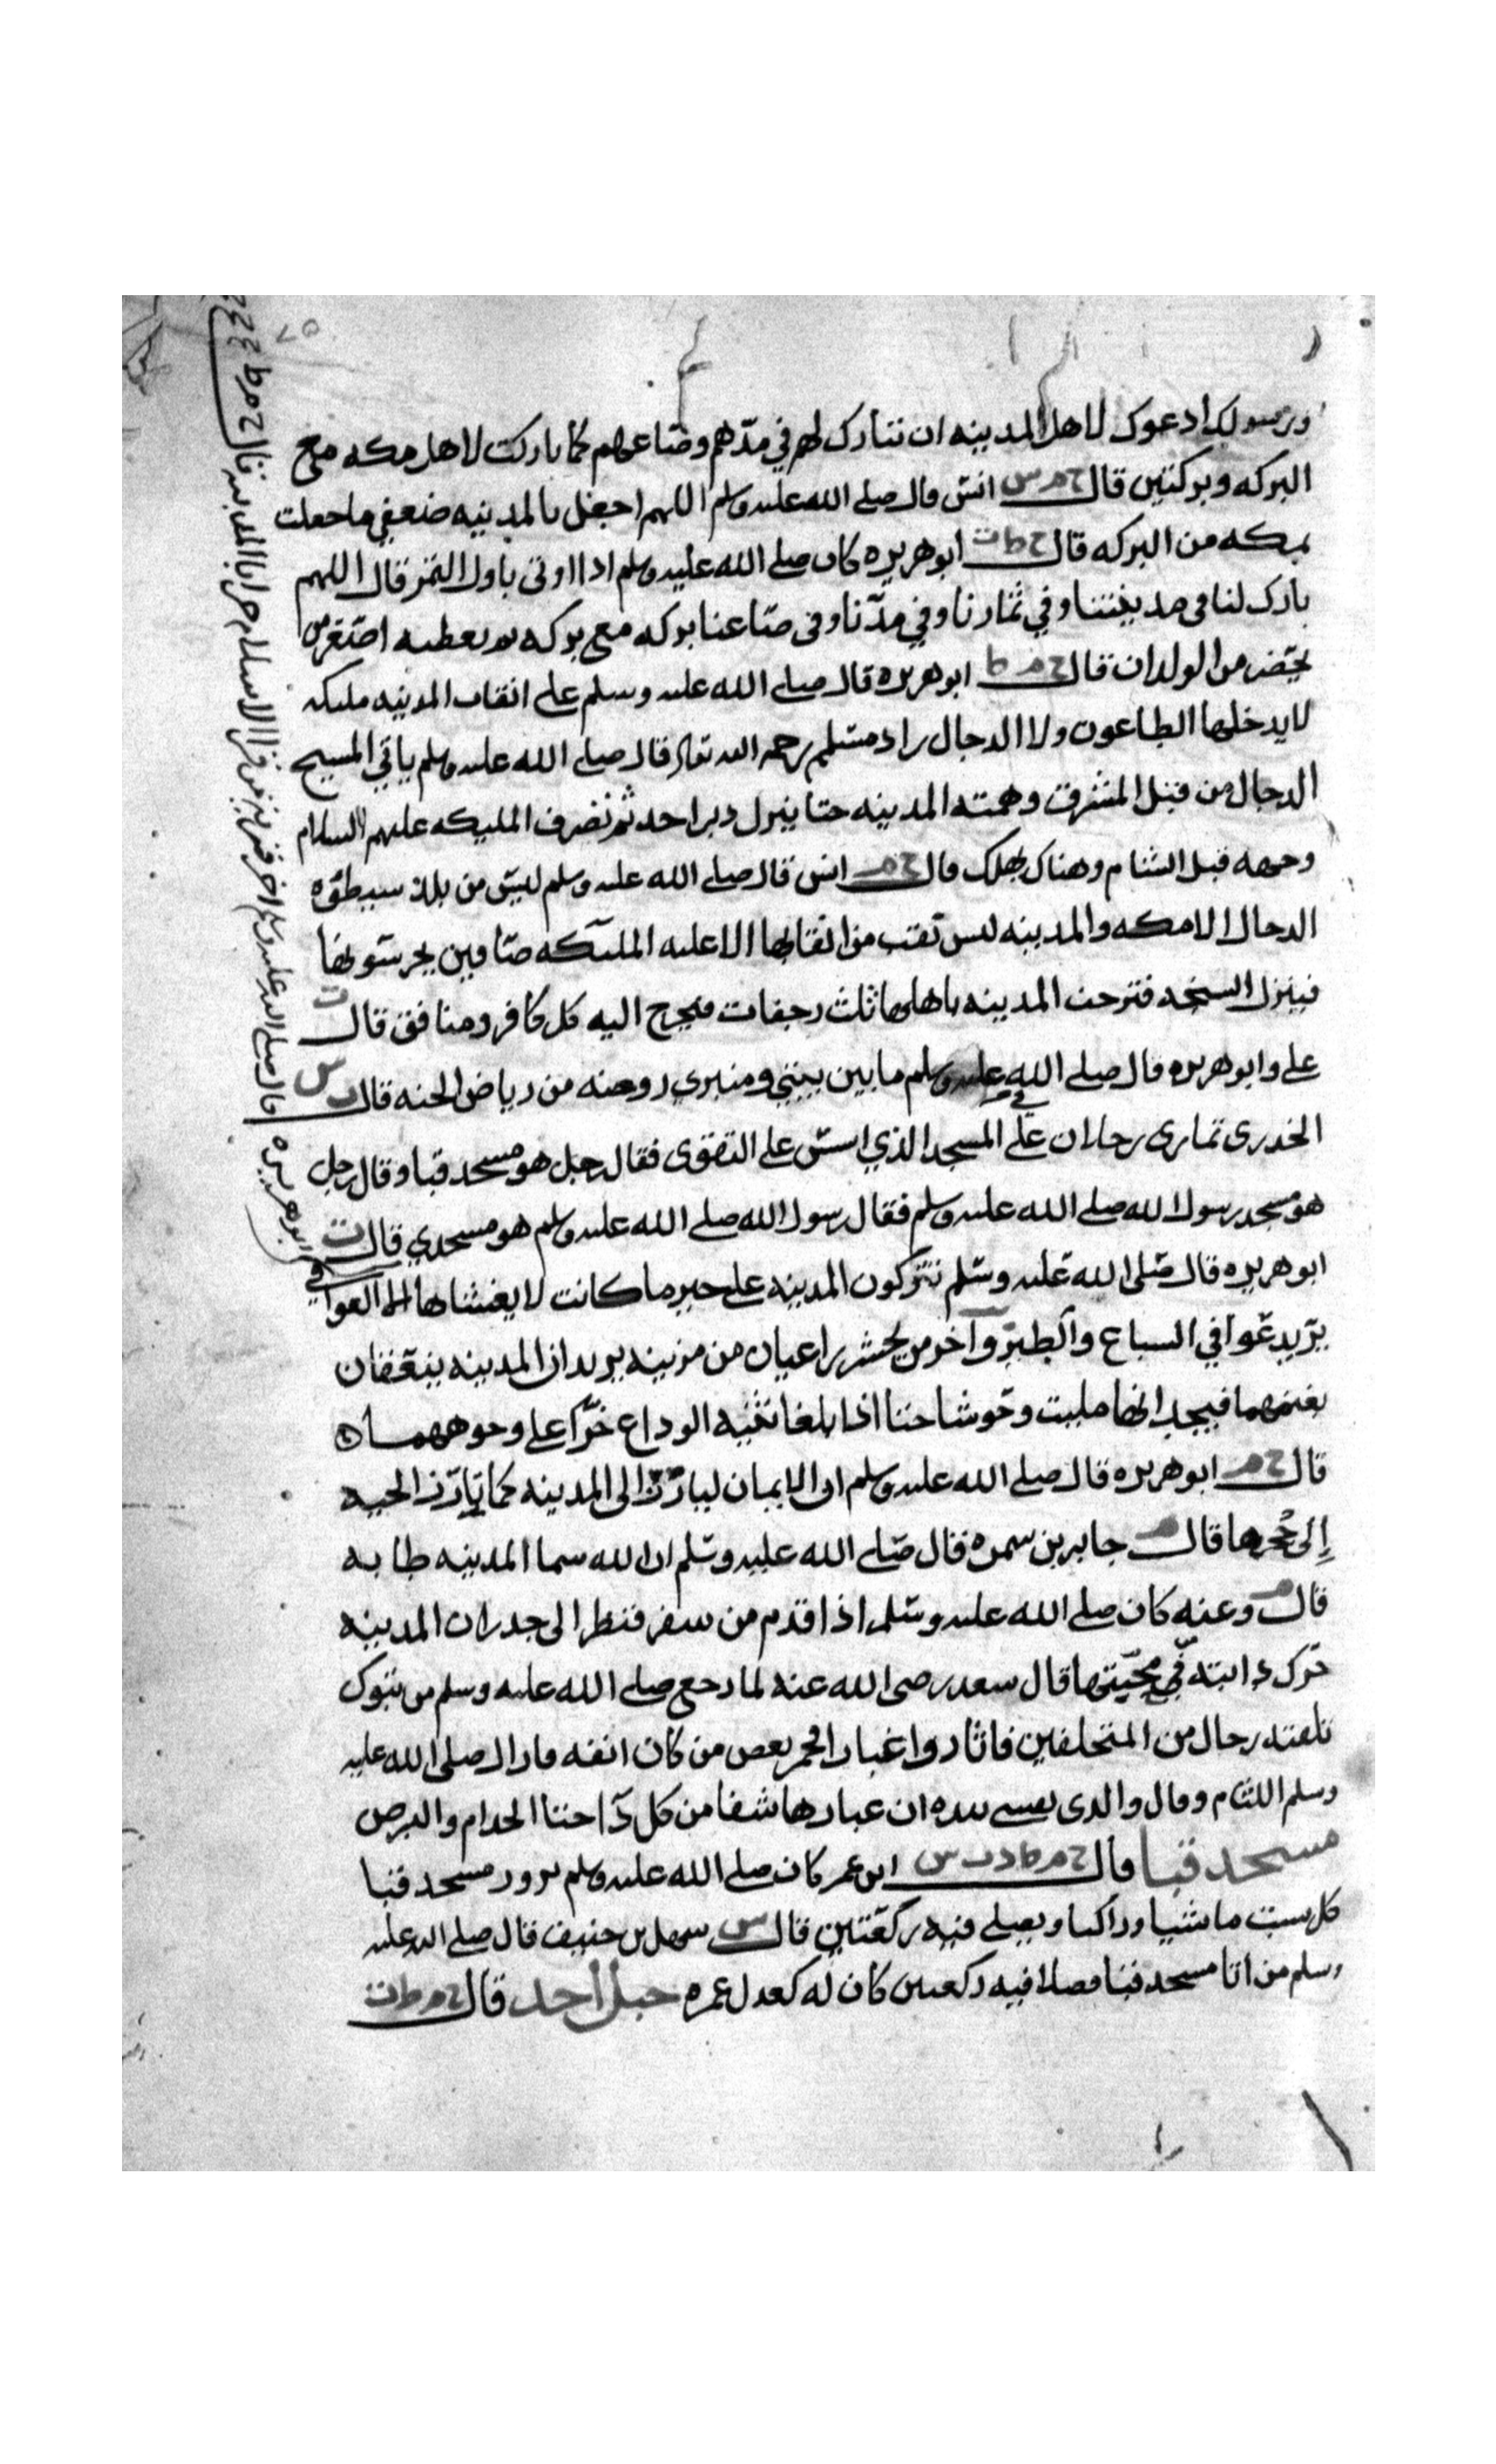 ورسولك ادعوك لاهل المدينه ان تبارك لهم في مدهم وصاعهم كما باركت لاهل مكه مع
البركه وبركتين قال خ م س انس قال صلى الله عليه وسلم اللهم اجعل بالمدينه ضعفي ما جعلت
بمكه من البركه قال ابو هريره كان صلى الله عليه وسلم اذا اوتى باول الثمر قال اللهم
بارك لنا فى مدينتنا وفي ثمارنا وفي مدنا وفى صاعنا بركه مع بركه ثم يعطيه اصغر من
يحضر من الولدان قال خ م ط ابو هريره قال صلى الله عليه وسلم على انقاب المدينه مليكه
لا يدخلها الطاعون ولا الدجال زاد مسلم رحمه الله تعالى قال صلى الله عليه وسلم ياتي المسيح
الدجال من قبل المشرق وهمته المدينه حتا ينزل دبر احد ثم تصرف المليكه عليهم السلام
وجهه قبل الشام وهناك يهلك قال خ م انس قال صلى الله عليه وسلم ليس من بلد سيطوه
الدجال الا مكه والمدينه ليس نقب من انقابها الا عليه المليكه صافين يحرسونها
فينزل السبخه فترجف المدينه باهلها ثلث رجفات فيخرج اليه كل كافر ومنافق قال ت
علي وابو هريره قال صلى الله عليه وسلم ما بين بيتي ومنبري روضه من رياض الجنه قال ت س
الخدرى تمارى رجلان في المسجد الذي اسس على التقوى فقال رجل هو مسجد قبا وقال رجل
هو مسجد رسول الله صلى الله عليه وسلم فقال رسول الله صلى الله عليه وسلم هو مسجدي قال
ابو هريره قال صلى الله عليه وسلم تتركون المدينه على خير ما كانت لا يغشاها الا العوافي
يريد عوافي السباع والطير وآخر من يحشر راعيان من مزينه يريدان المدينه ينعقان
بغنمهما فيجدانها مليت وحوشا حتا اذا بلغا ثنيه الوداع خرا على وجوههما ه
قال خ م ابو هريره قال صلى الله عليه وسلم ان الايمان ليارز الى المدينه كما تارز الحيه
إلى جُحرها قال م جابر بن سمره فقال صلى الله عليه وسلم ان الله سما المدينه طابه
قال وعنه كان صلى الله عليه وسلم اذا قدم من سفر فنظر الى جدران المدينه
حرك دابته في محبتها قال سعد رضى الله عنه لما رجع صلى الله عليه وسلم من تبوك
تلقته رجال من المتخلفين فاثاروا غبارا فخمر بعض من كان انفه فازال صلى الله عليه
وسلم اللثام وقال والدى نفسي بيده ان غبارها شفا من كل دآ حتا الجدام والبرص
مسجد قبا قال خ م ط د س ابن عمر كان صلى الله عليه وسلم يزور مسجد قبا
كل سبت ماشيا وراكبا ويصلي فيه ركعتين قال س سهل بن حنيف قال صلى الله عليه
وسلم من اتا مسجد قبا فصلا فيه ركعتين كان له كعدل عمره جبل احد قال خ م ط ت
ابو هريره قال صلى الله عليه وسلم اخر قريه من قرى الاسلام خرابا المدينه قال خ م ط